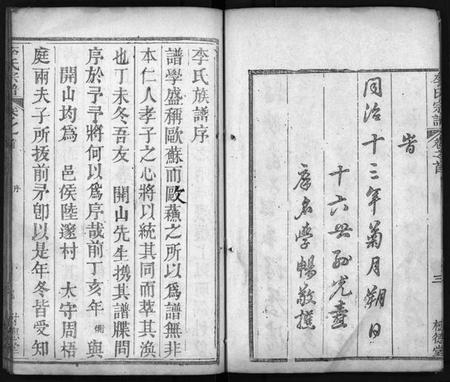 李氏宗譜
卷之首
三
植德堂
旹
同治十三年菊月朔日
十六世孫光臺
庠名學暢敬撰
李氏族譜序
譜學盛稱歐蘇而歐蘇之所以為譜無非
本仁人孝子之心將以統其同而萃其渙
也丁未冬吾友　開山先生携其譜牒問
序於予予將何以為序哉前丁亥年　與
開山均為　邑侯陸邃村　太守周梧
庭兩夫子所拔前矛卽以是年冬皆受知
李氏宗譜
卷之首